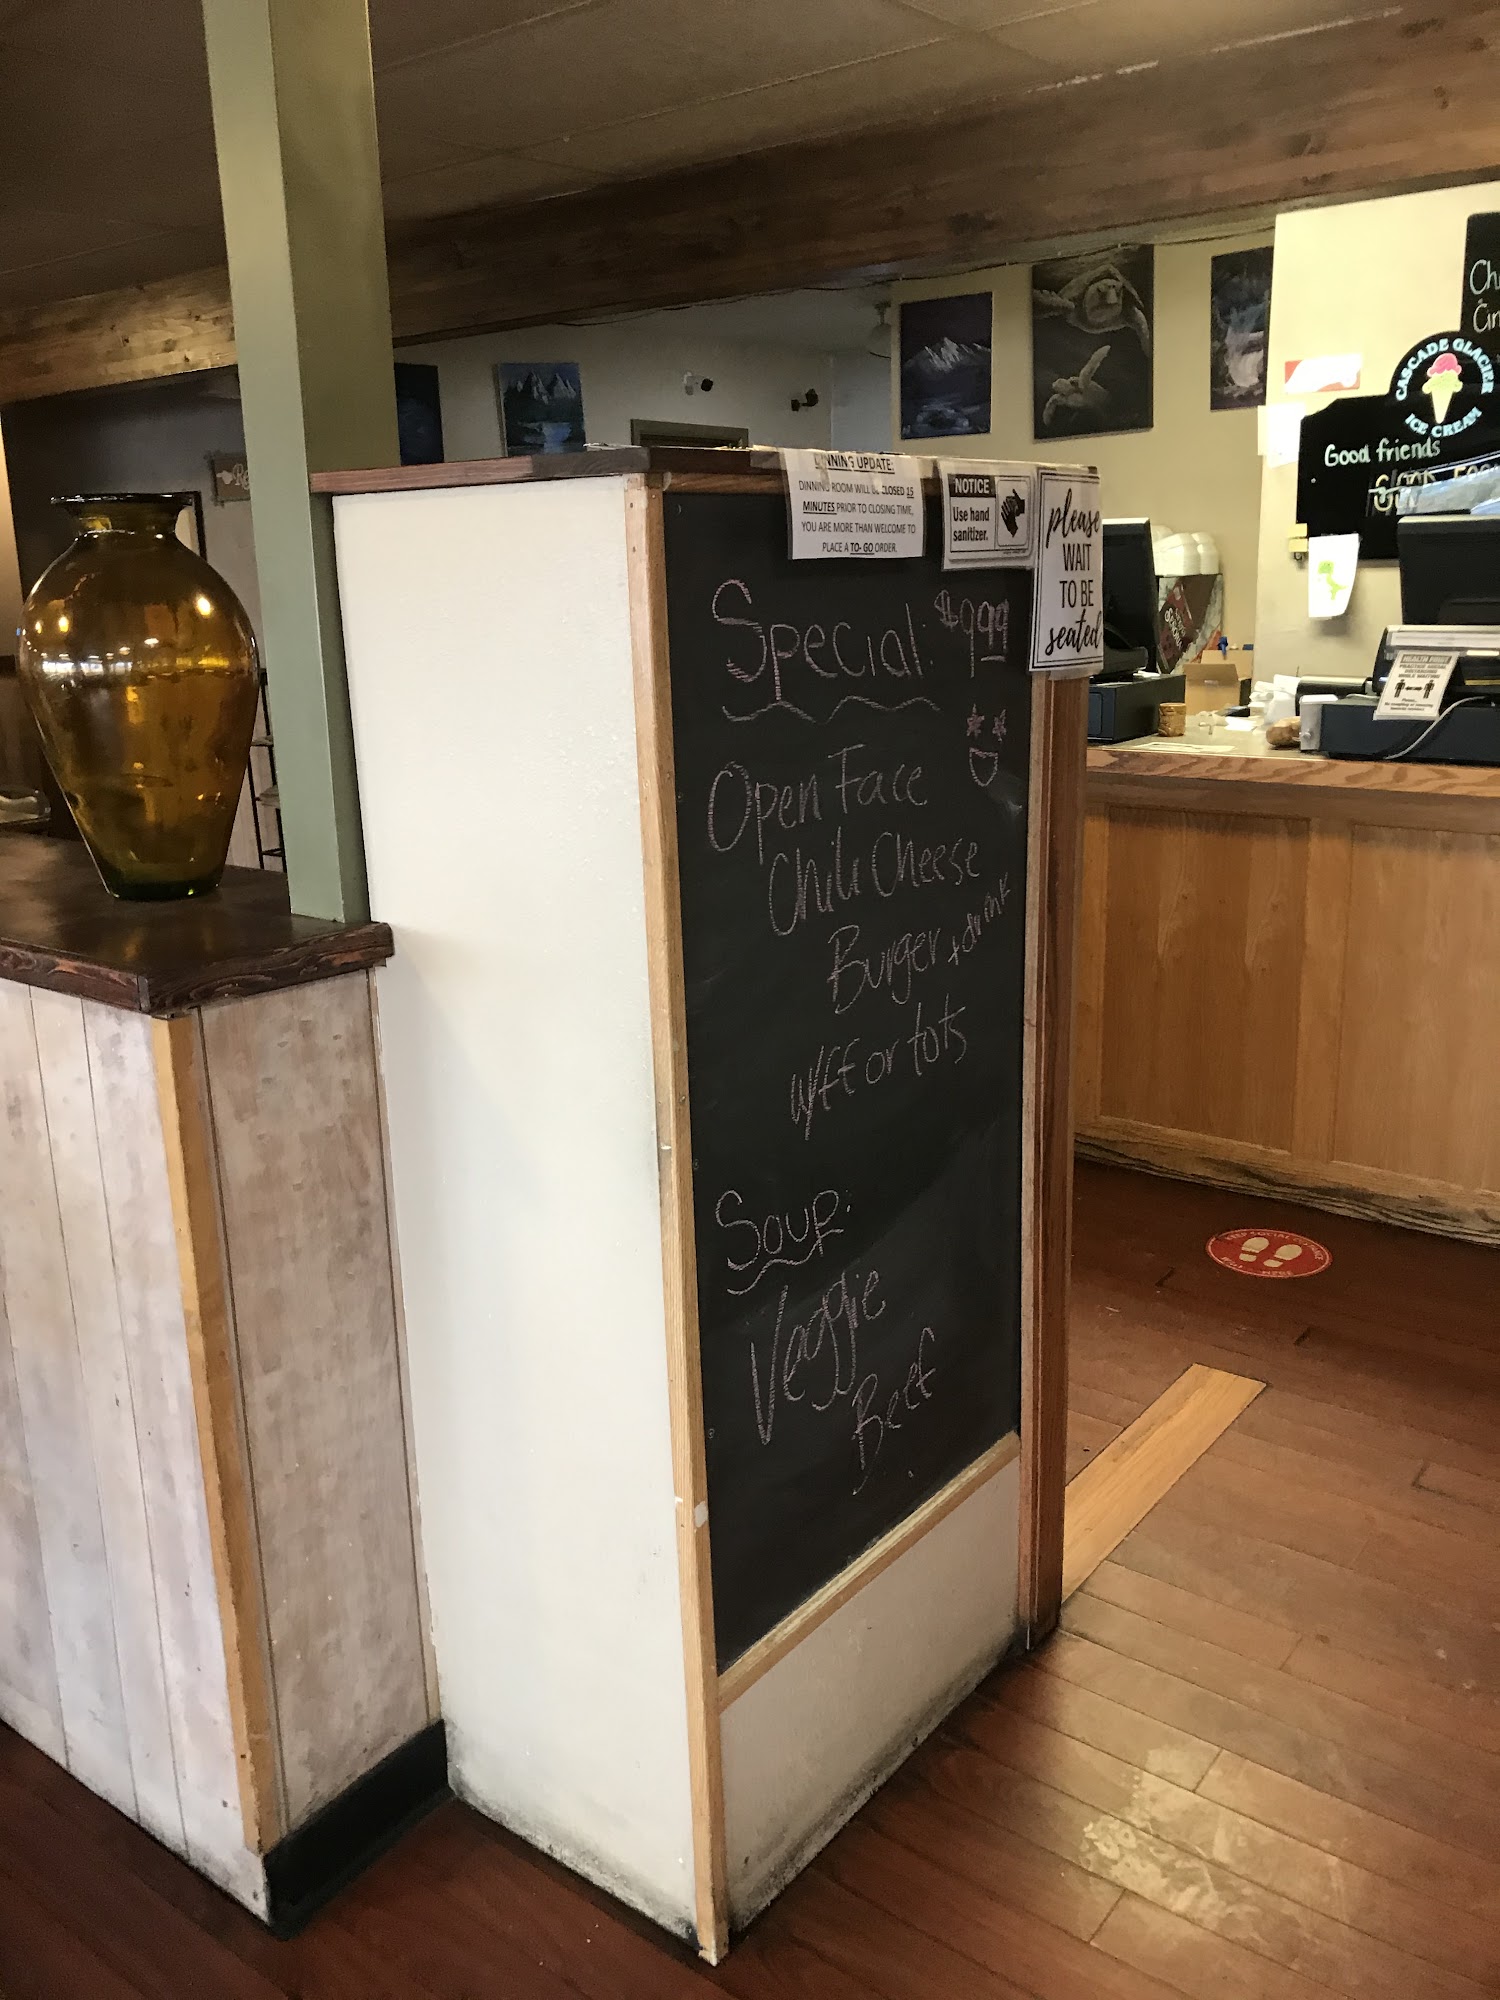 DINNING UPDATE:
DINNING ROOM WILL BE CLOSED 15
MINUTES PRIOR TO CLOSING TIME,
YOU ARE MORE THAN WELCOME TO
PLACE A TO- GO ORDER.
NOTICE
Use hand
sanitizer.
please
WAIT
TO BE
seated
Special: $9.99
Open Face
Chili Cheese
Burger + drink
w/FF or tots
Soup:
Veggie
Beef
CASCADE GLACIER
ICE CREAM
Good friends
HEALTH FIRST
PRACTICE SOCIAL
DISTANCING
WHILE WAITING
KEEP SOCIAL DISTANCE
HERE